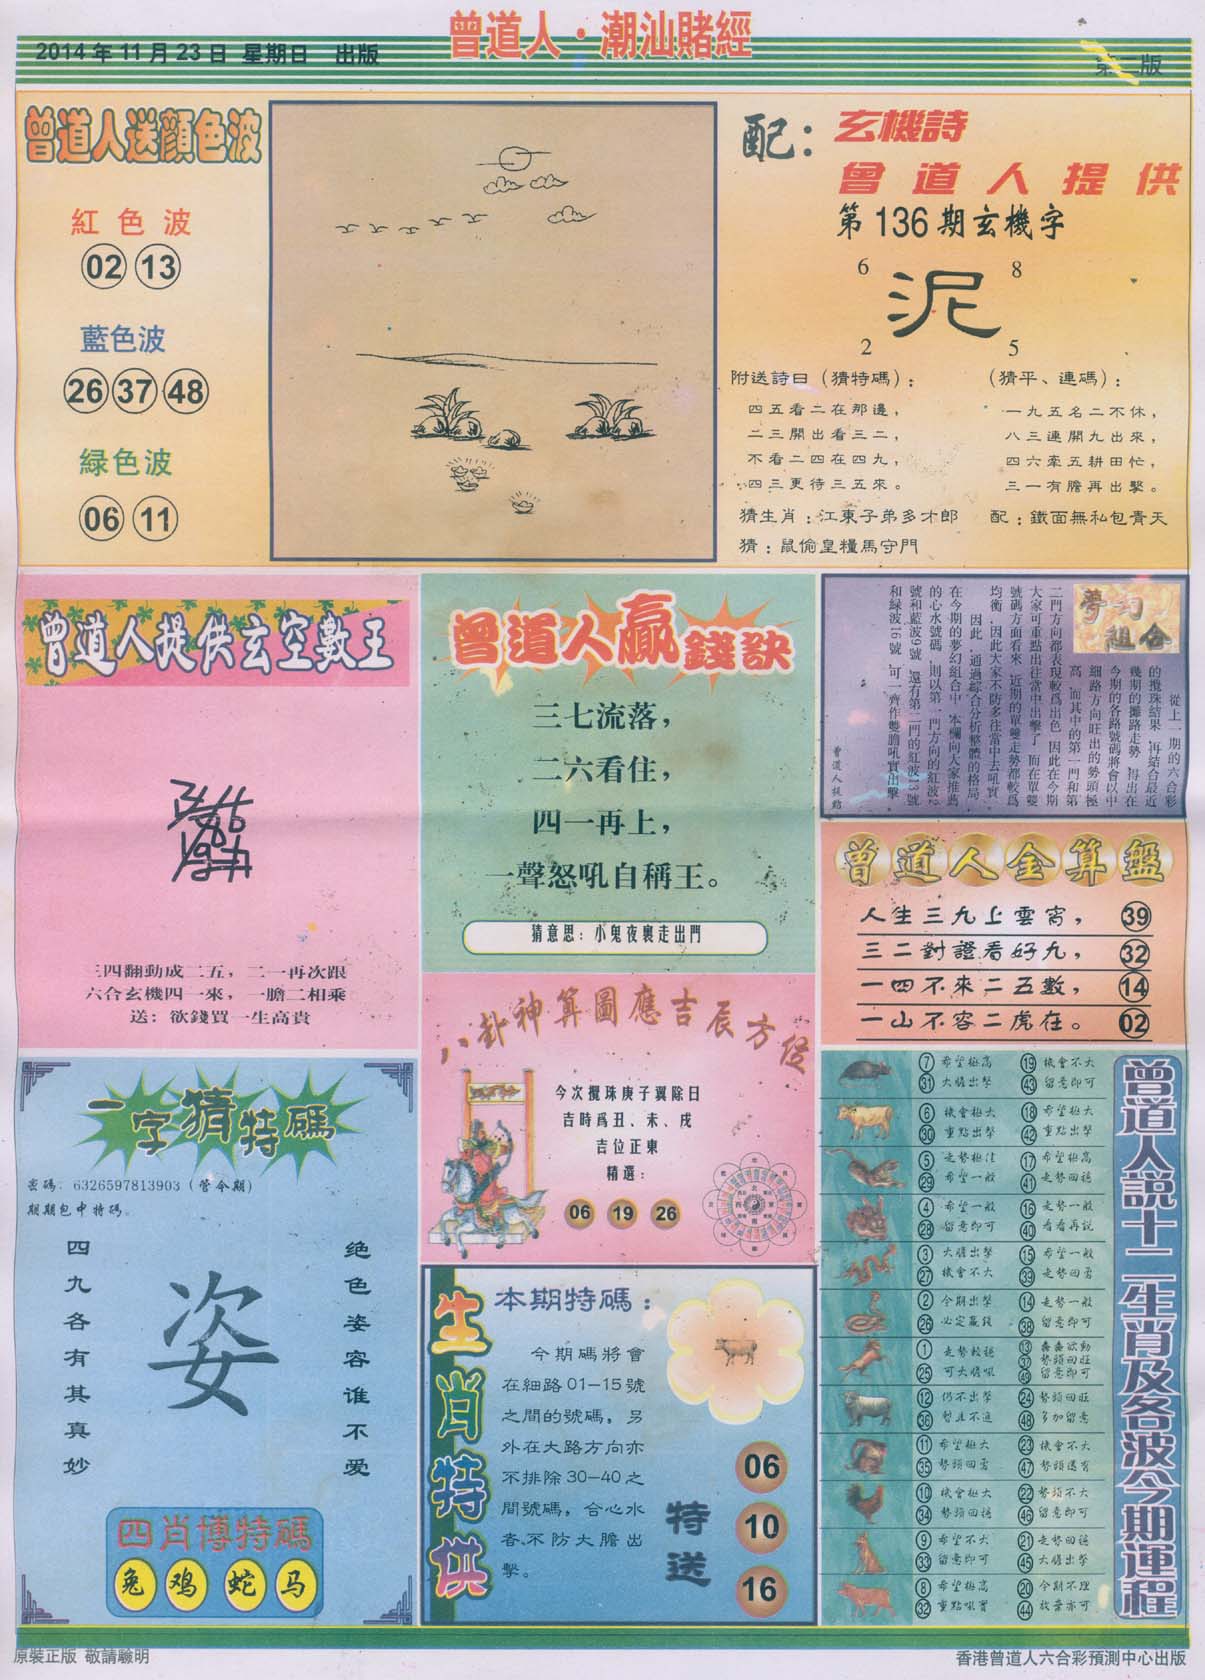 曾道人·潮汕賭經
2014年11月23日 星期日 出版
第二版
曾道人送顔色波
紅色波
02 13
藍色波
26 37 48
緑色波
06 11
配:
玄機詩
曾道人提供
第136期玄機字
6 8
泥
2 5
附送詩曰(猜特碼):
四五看二在那邊,
二三開出看三二,
不看二四在四九,
四三更待三五來。
(猜平、連碼):
一九五名二不休,
八三連開九出來,
四六牽五耕田忙,
三一有膽再出擊。
猜生肖:江東子弟多才郎
配:鐵面無私包青天
猜:鼠偷皇糧馬守門
曾道人提供玄空數王
三四翻動成二五,二一再次跟
六合玄機四一來,一膽二相乘
送:欲錢買一生高貴
曾道人贏錢訣
三七流落,
二六看住,
四一再上,
一聲怒吼自稱王。
猜意思:小鬼夜裏走出門
夢幻組合
從上一期的六合彩
的攪珠結果,再結合最近
幾期的攤路走勢,得出在
今期的各路號碼將會以中
細路方向旺出的勢頭極
高,而其中的第一門和第
二門方向都表現較爲出色,因此在今期
大家可重點出往當中出擊了,而在單雙
號碼方面看來,近期的單雙走勢都較爲
均衡,因此大家不防多往當中去吼實。
因此,通過綜合分析整體的格局,
在今期的夢幻組合中,本欄向大家推薦
的心水號碼,則以第一門方向的紅波2
號和藍波9號,還有第二門的紅波13號
和緑波16號,可一齊作雙膽吼實出擊。
曾道人提點
曾道人金算盤
人生三九上雲霄, 39
三二對證看好九, 32
一四不來二五數, 14
一山不容二虎在。 02
八卦神算圖應吉辰方促
今次攪珠庚子翼除日
吉時爲丑、未、戌
吉位正東
精選:
06 19 26
一字猜特碼
密碼:6326597813903(管今期)
期期包中特碼。
四九各有其真妙
姿
绝色姿容谁不爱
四肖博特碼
兔 鸡 蛇 马
生肖特供
本期特碼:
今期碼將會
在細路01—15號
之間的號碼,另
外在大路方向亦
不排除30—40之
間號碼,合心水
者,不防大膽出
擊。
特送
06
10
16
曾道人説十二生肖及各波今期運程
7 希望極高 19 機會不大
31 大膽出擊 43 留意即可
6 機會極大 18 希望極大
30 重點出擊 42 重點出擊
5 走勢極佳 17 希望極高
29 希望一般 41 走勢回穩
4 希望一般 16 走勢一般
28 留意即可 40 看看再説
3 大膽出擊 15 希望一般
27 機會不大 39 走勢回勇
2 今期出擊 14 走勢一般
26 必定贏錢 38 留意即可
1 走勢較穩 13 蠢蠢欲動
25 可大膽吼 37 勢頭回旺
49 留意即可
12 仍不出擊 24 勢頭回旺
36 暫且不追 48 多加留意
11 希望極大 23 機會不大
35 勢頭回勇 47 勢頭還有
10 機會極大 22 勢頭不大
34 勢頭回穩 46 留意即可
9 希望不大 21 走勢回穩
33 留意即可 45 大膽出擊
8 希望極高 20 今期不理
32 重點吼實 44 放棄亦可
原裝正版 敬請聯明
香港曾道人六合彩預測中心出版